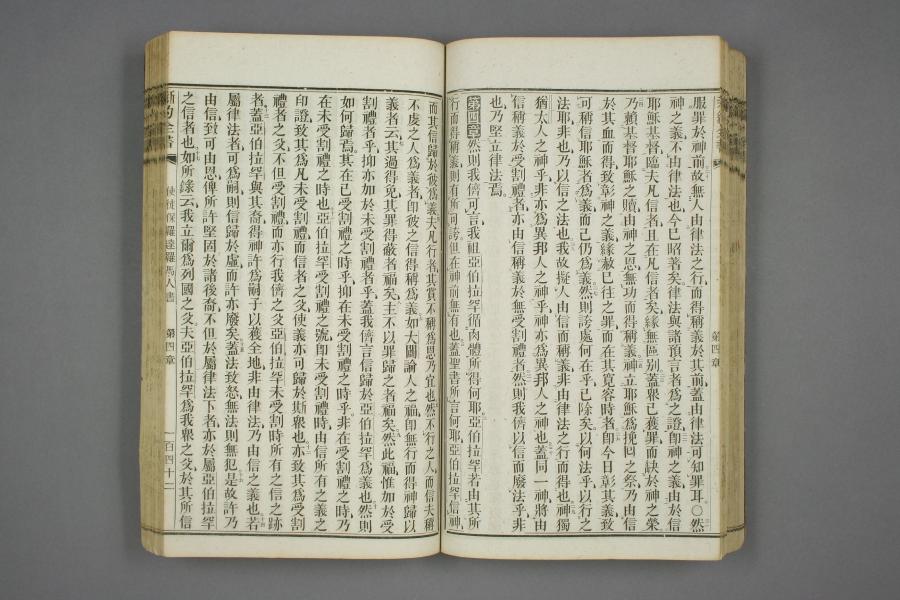 服罪於神前故無人由律法之行而得稱義於其前蓋由律法可知罪耳○然
神之義不由律法也今已昭著矣律法與諸預言者爲之證卽神之義由於信
耶穌基督臨夫凡信者且在凡信者矣緣無區别蓋衆已獲罪而缺於神之榮
乃賴基督耶穌之贖由神之恩無功而得稱義神立耶穌爲挽囘之祭乃由信
於其血而得致彰神之義緣赦已往之罪而在其寬容時者卽今日彰其義致
可稱信耶穌者爲義而己仍爲義然則誇處何在乎已除矣以何法乎以行之
法耶非也乃以信之法也我故擬人由信而稱義非由律法之行而得也神獨
猶太人之神乎非亦爲異邦人之神乎神亦爲異邦人之神也蓋同一神將由
信稱義於受割禮者亦由信稱義於無受割禮者然則我儕以信而廢法乎非
也乃堅立律法焉
第四章然則我儕可言我祖亞伯拉罕循肉體所得何耶亞伯拉罕若由其所
行而得稱義則有所可誇但在神前無有也蓋聖書所言何耶亞伯拉罕信神
而其信歸於彼爲義夫凡行者其賞不稱爲恩乃宜也然不行之人而信夫稱
不虔之人爲義者卽彼之信得稱爲義如大闢論人之福卽無行而得神歸以
義者云其過得免其罪得蔽者福矣主不以罪歸之者福矣然此福惟加於受
割禮者乎抑亦加於未受割禮者乎蓋我儕言信歸於亞伯拉罕爲義也然則
如何歸焉其在已受割禮之時乎抑在未受割禮之時乎非在受割禮之時乃
在未受割禮之時也亞伯拉罕受割禮之號卽未受割禮時由信所有之義之
印證致其爲凡未受割禮而信者之父使義亦可歸於斯衆也亦致其爲受割
禮者之父不但受割禮而亦行我儕之父亞伯拉罕未受割時所有之信之跡
者蓋亞伯拉罕與其裔得神許爲嗣子以獲全地非由律法乃由信之義也若
屬律法者可爲嗣則信歸於虛而許亦廢矣蓋法致怒無法則無犯是故許乃
由信致可由恩俾所許堅固於諸後裔不但於屬律法下者亦於屬亞伯拉罕
之信者也如所錄云我立爾爲列國之父夫亞伯拉罕爲我衆之父於其所信
新約全書
使徒保羅達羅馬人書
第四章
一百四十二
第四章